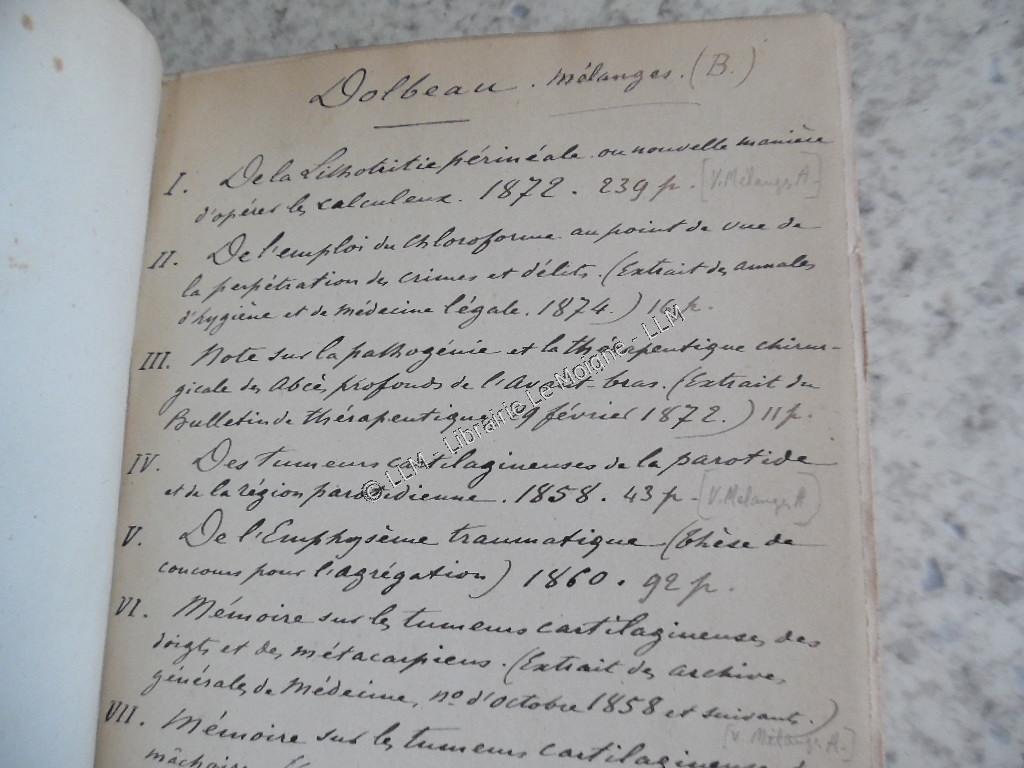 Dolbeau. Mélanges. (B.)
I. De la Lithotritie périnéale ou nouvelle manière
d'opérer les calculeux. 1872. 239 p. [V. Mélanges A.]
II. De l'emploi du Chloroforme au point de vue de
la perpétration des crimes et délits. (Extrait des annales
d'hygiène et de médecine légale. 1874.) 16 p.
III. Note sur la pathogénie et la thérapeutique chirur-
gicale des Abcès profonds de l'Avant-bras. (Extrait du
Bulletin de thérapeutique 29 février 1872.) 11 p.
IV. Des tumeurs cartilagineuses de la parotide
et de la région parotidienne. 1858. 43 p. [V. Mélanges A]
V. De l'Emphysème traumatique (thèse de
concours pour l'agrégation) 1860. 92 p.
VI. Mémoire sur les tumeurs cartilagineuses des
doigts et des métacarpiens. (Extrait des archives
générales de Médecine, no. d'Octobre 1858 et suivants.)
[V. Mélanges A.]
VII. Mémoire sur les tumeurs cartilagineuses
mâchoire
© LLM - Librairie Le Moigne - LLM